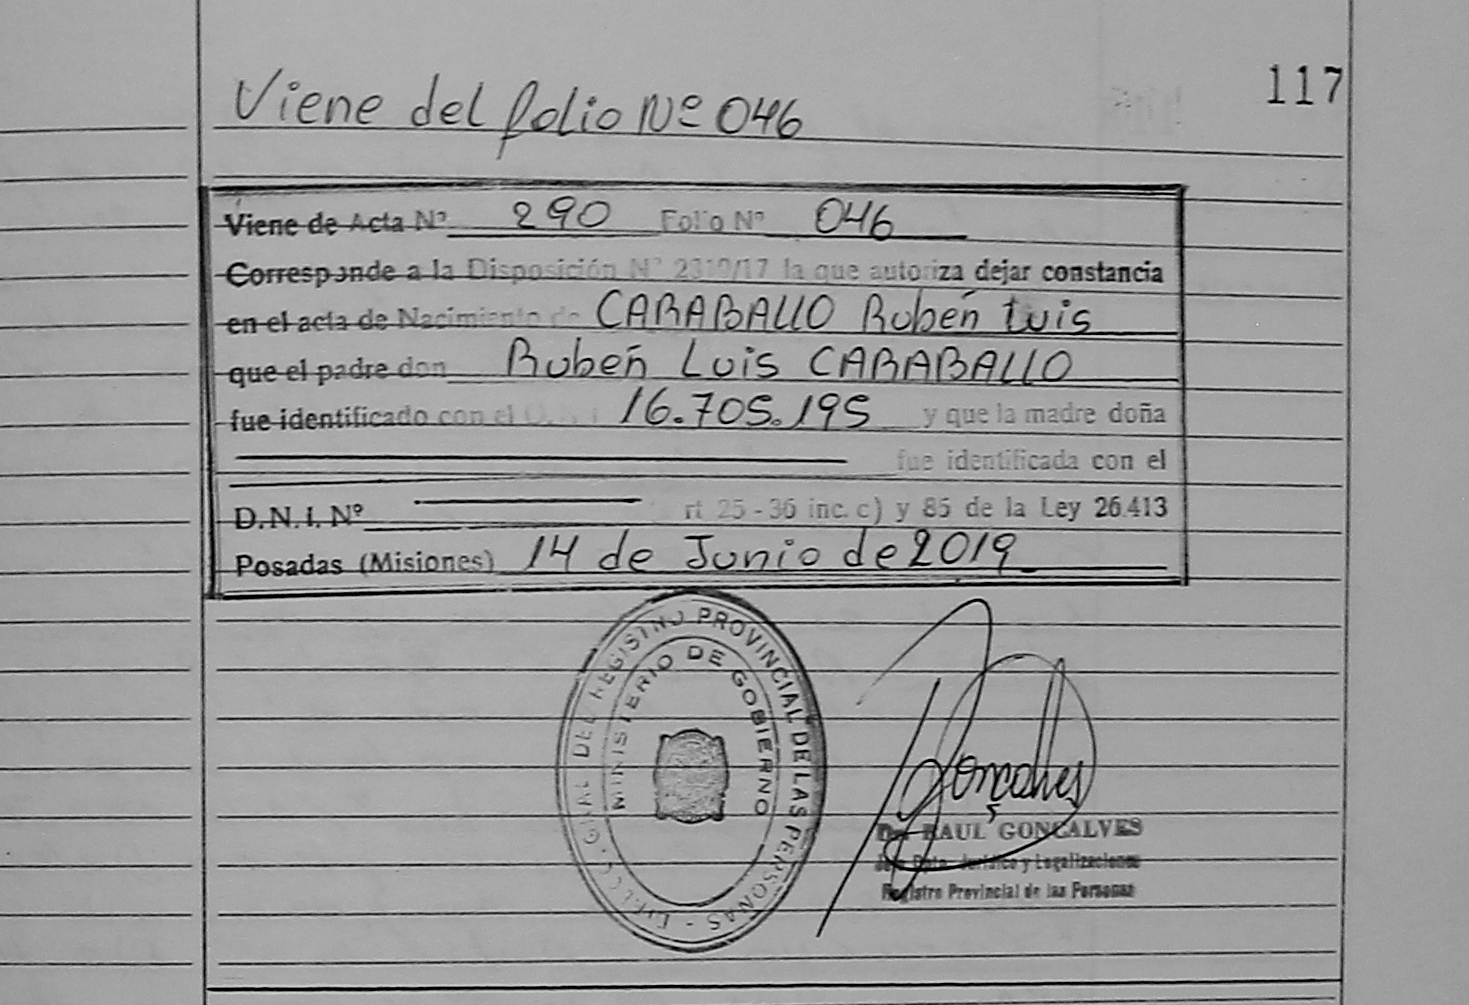 117
Viene del folio Nº 046
Viene de Acta Nº 290 Folio Nº 046
Corresponde a la Disposición Nº 2310/17 la que autoriza dejar constancia
en el acta de Nacimiento de CARABALLO Rubén Luis
que el padre don Rubén Luis CARABALLO
fue identificado con el 16.705.195 y que la madre doña
fue identificada con el
D.N.I. Nº rt 25 - 36 inc. c) y 85 de la Ley 26.413
Posadas (Misiones) 14 de Junio de 2019
DEL REGISTRO PROVINCIAL DE LAS PERSONAS
MINISTERIO DE GOBIERNO
Gonçalves
Dr. RAUL GONÇALVES
Jefe Dpto. Jurídico y Legalizaciones
Registro Provincial de las Personas